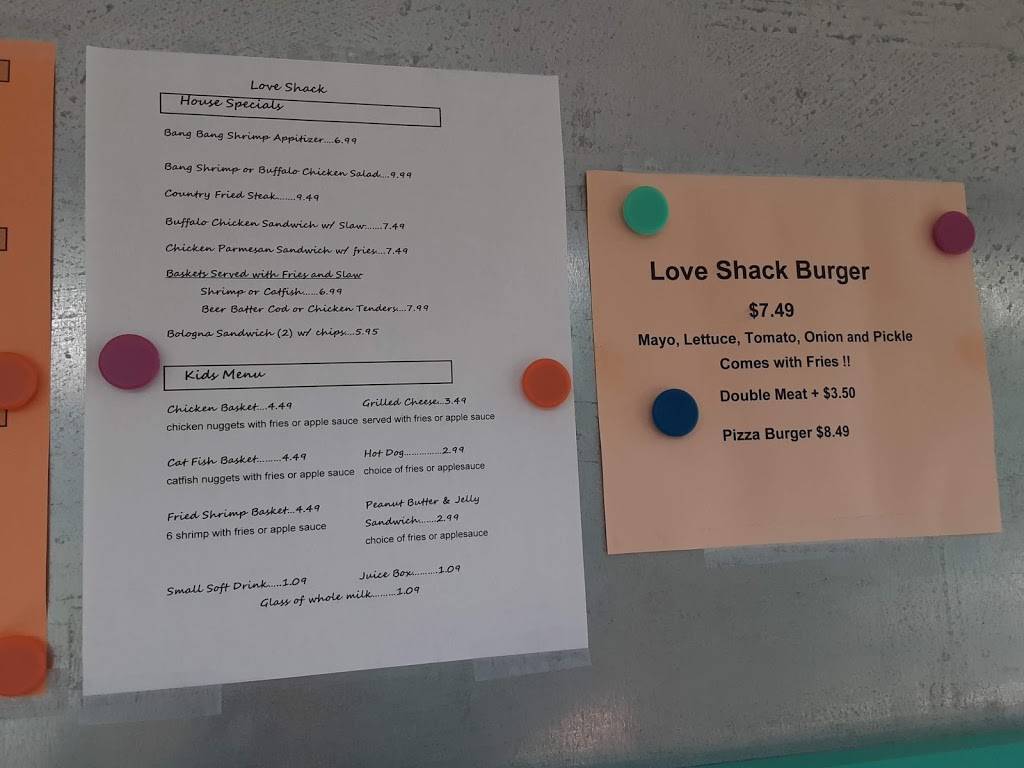 Love Shack
House Specials
Bang Bang Shrimp Appitizer....6.99
Bang Shrimp or Buffalo Chicken Salad....9.99
Country Fried Steak........9.49
Buffalo Chicken Sandwich w/ Slaw.......7.49
Chicken Parmesan Sandwich w/ fries....7.49
Baskets Served with Fries and Slaw
Shrimp or Catfish......6.99
Beer Batter Cod or Chicken Tenders....7.99
Bologna Sandwich (2) w/ chips....5.95
Kids Menu
Chicken Basket....4.49
chicken nuggets with fries or apple sauce
Grilled Cheese...3.49
served with fries or apple sauce
Cat Fish Basket.........4.49
catfish nuggets with fries or apple sauce
Hot Dog...............2.99
choice of fries or applesauce
Fried Shrimp Basket...4.49
6 shrimp with fries or apple sauce
Peanut Butter & Jelly
Sandwich.......2.99
choice of fries or applesauce
Small Soft Drink.....1.09
Juice Box..........1.09
Glass of whole milk.........1.09
Love Shack Burger
$7.49
Mayo, Lettuce, Tomato, Onion and Pickle
Comes with Fries !!
Double Meat + $3.50
Pizza Burger $8.49